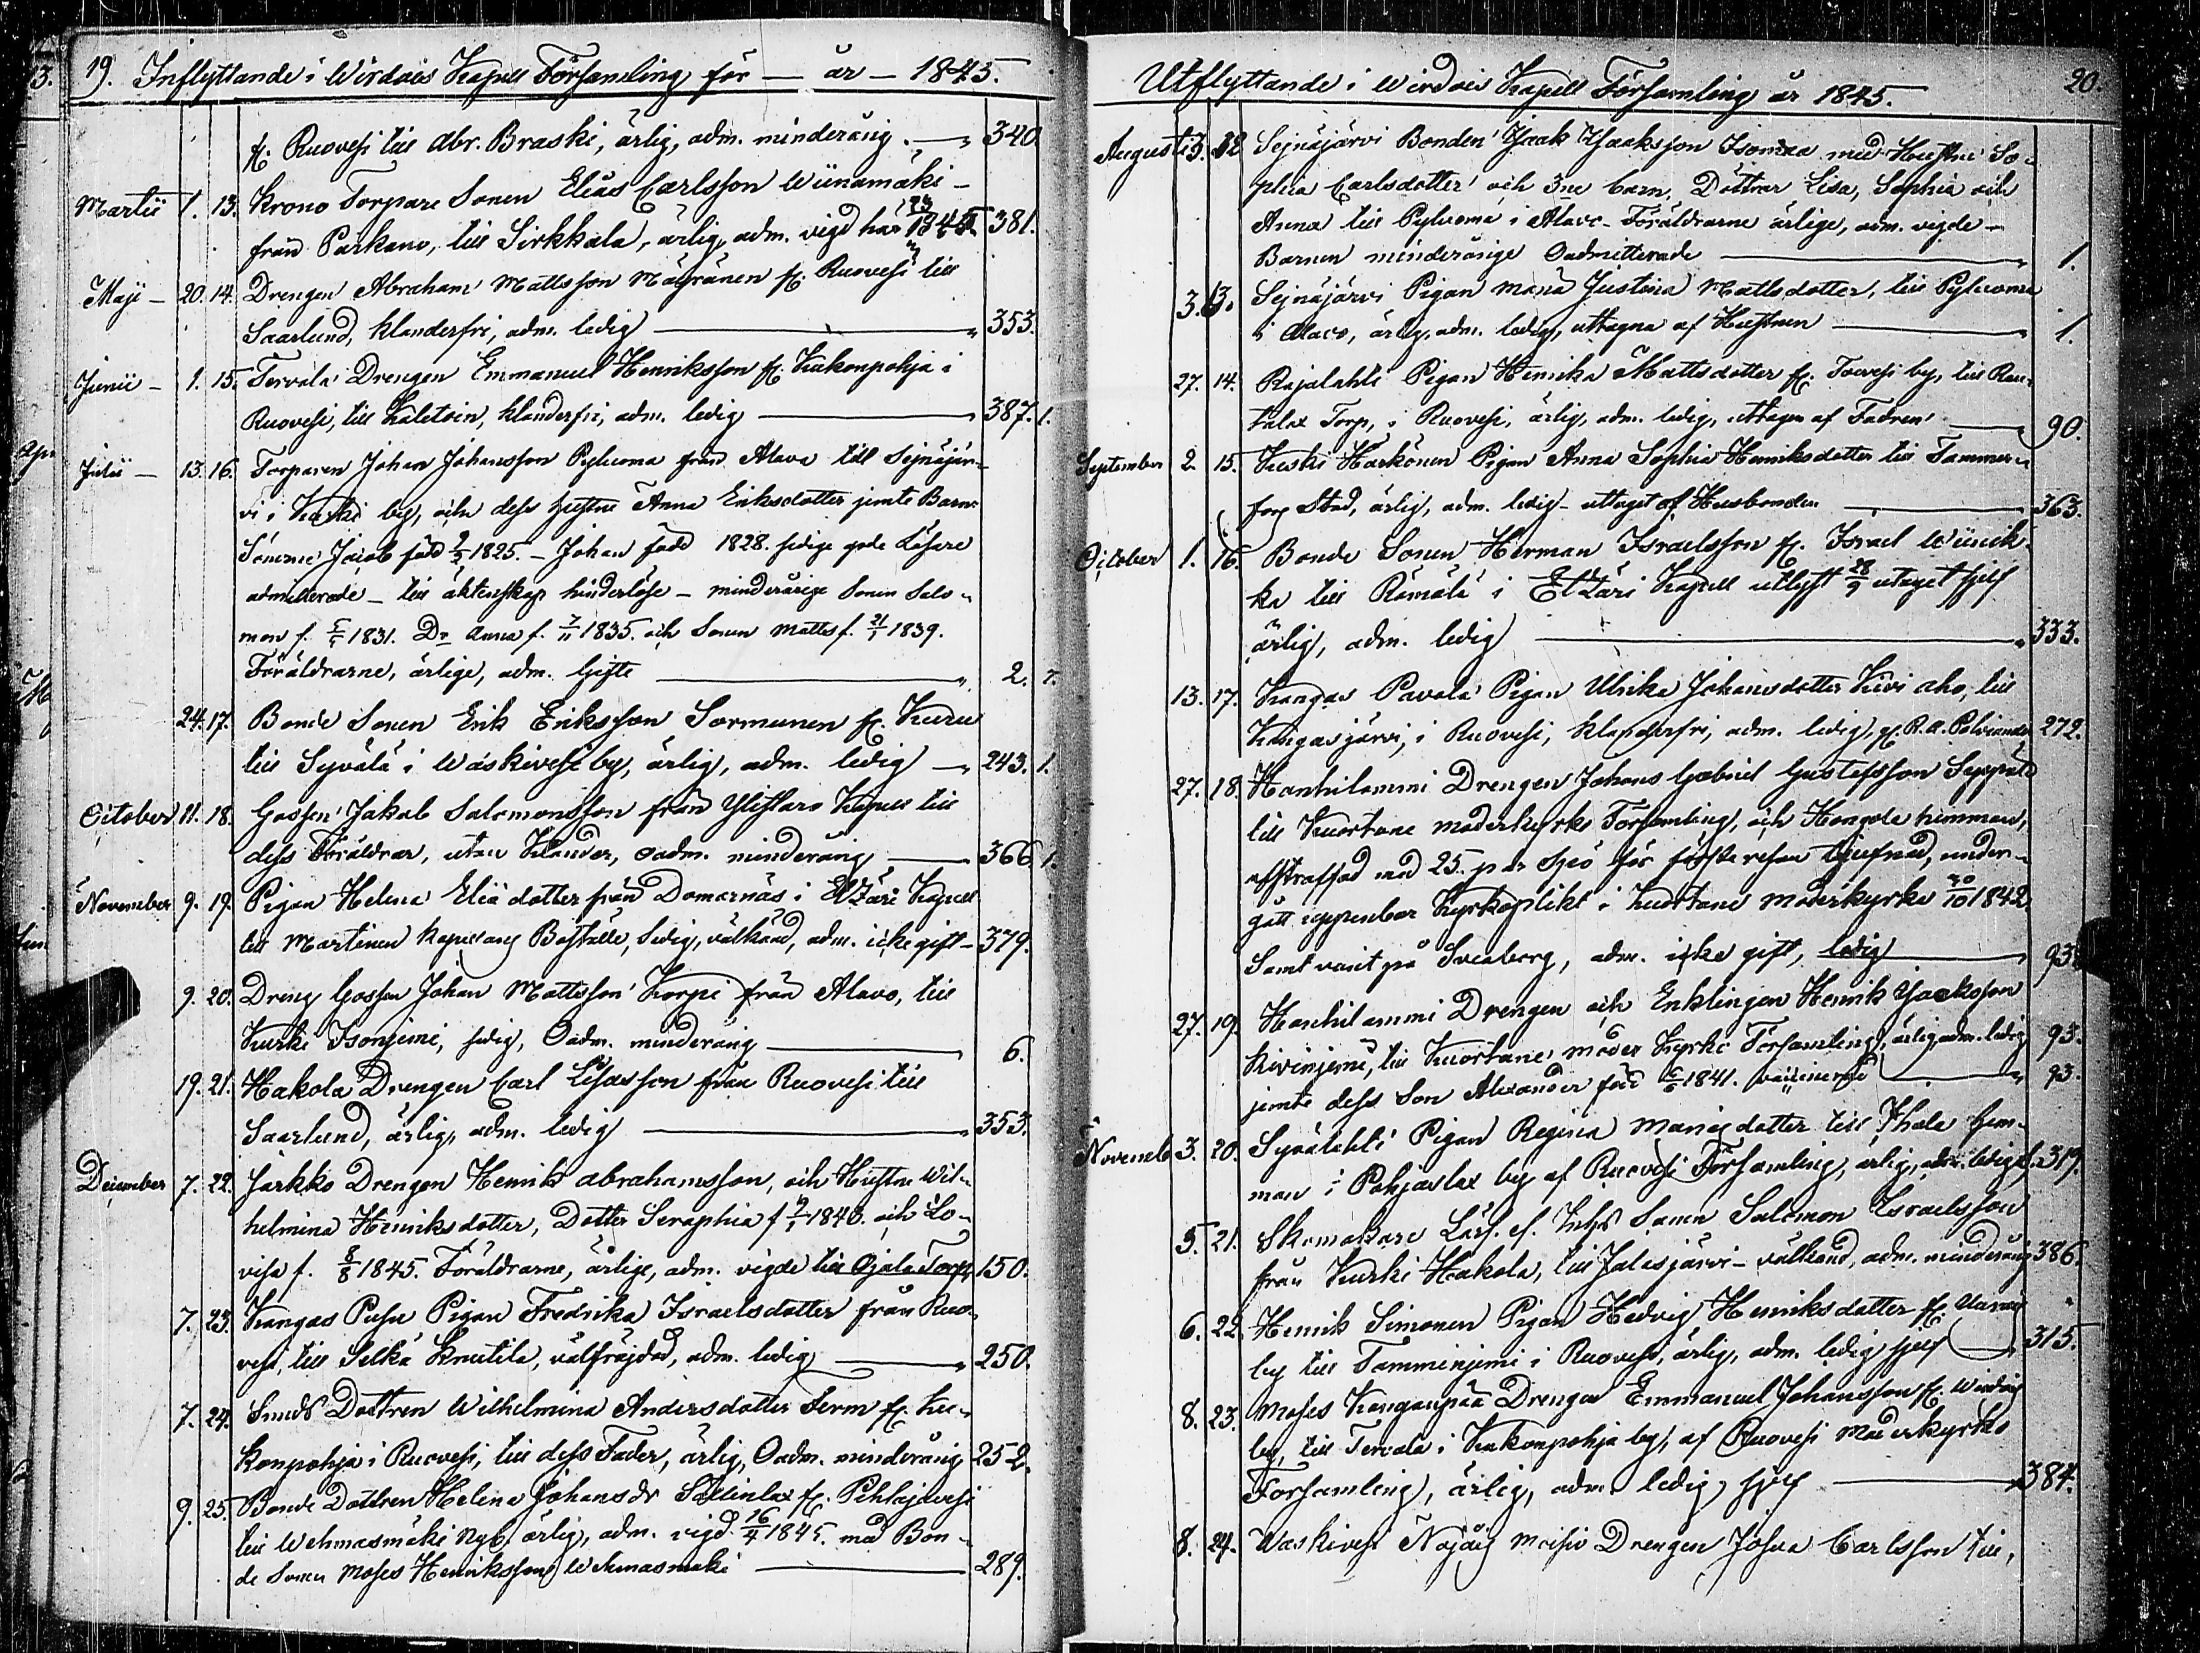 19. Inflyttande i Wirdois Kapell Församling för — år — 1845.
fr. Ruovesi till Abr. Braski, ärlig, adm. minderårig. — 340
Martii 1. 13. Krono Torpare Sonen Elias Carlsson Wiinamäki
från Parkano, till Sirkkala, ärlig, adm. vigd här 1845. 381.
Maji — 20. 14. Drengen Abraham Mattsson Mägränen fr. Ruovesi till
Saarlund, klanderfri, adm. ledig — 353.
Junii — 1. 15. Tervala Drengen Emmanuel Henriksson fr. Kukonpohja i
Ruovesi, till Kaletoin, klanderfri, adm. ledig — 387. 1.
Julii — 13. 16. Torparen Johan Johansson Pyluoma från Alavo till Sejnäjär-
vi i Kurki by, och dess Hustru Anna Eriksdotter jemte Barn:
Sönerne Jacob född 1825. — Johan född 1828. sedige gode Läsare
admitterade — till äktenskap hinderlöse — minderårige Sonen Salo-
mon f. 1831. Dr Anna f. 7/11 1835. och Sonen Matts f. 21/1 1839.
Föräldrarne, ärlige, adm. Gifte — 2. 7.
24. 17. Bonde Sonen Erik Eriksson Sormunen fr. Kuru
till Syvälä i Wäskivesi by, ärlig, adm. ledig — 243. 1.
October 11. 18. Gossen Jakob Salomonsson från Ylistaro Kapell till
dess Föräldrar, utan Klander, oadm. minderårig — 366 1.
November 9. 19. Pigan Helena Eliædotter från Domarnäs i Etzäri Kapell
till Martinen Kapellans Boställe, sedig, välkänd, adm. icke gift — 379.
9. 20. Dreng Gossen Johan Mattsson Korpi från Alavo, till
Kurki Isoniemi, sedig, Oadm. minderårig — 6.
19. 21. Hakola Drengen Carl Esaisson från Ruovesi till
Saarlund, ärlig, adm. ledig — 353.
December 7. 22. Jarkko Drengen Henrik Abrahamsson, och Hustru Wil-
helmina Henriksdotter, Dotter Seraphia f 1840. och Lo-
visa f. 8/8 1845. Föräldrarne, ärlige, adm. vigde till Ojala Torp, 150.
7. 23. Kangas Pusu Pigan Fredrika Israelsdotter från Ruo-
vesi, till Selkä Knutila, välfräjdad, adm. ledig — 250.
7. 24. Smeds Dottren Wilhelmina Andersdotter Serm fr. Ku-
konpohja i Ruovesi, till dess Fader, ärlig, Oadm. minderårig 252.
9. 25. Bonde Dottren Helena Johansdr fr. Pihlajavesi
till Wehmasmäki Nyb. ärlig, adm. vigd 16/4 1845. med Bon-
de Sonen Moses Henriksson Wehmasmäki — 289.
Utflyttande i Wirdois Kapell Församling år 1845. 20.
Augusti 3. 12 Sejnäjärvi Bonden Isaak Isaaksson Isomaa med Hustru So-
phia Carlsdotter och 3ne barn, Döttrar Lisa, Sophia och
Anna till Pyluoma i Alavo. Föräldrarne ärlige, adm. vigde —
Barnen minderårige Oadmitterade — 1.
3. 13. Sejnäjärvi Pigan Maria Justina Mattsdotter, till Pyluoma
i Alavo, ärlig, adm. ledig, uttagna af Hustrun — 1.
27. 14. Rajalahti Pigan Henrika Mattsdotter fr. Toivesi by, till Rau-
talax Torp, i Ruovesi, ärlig, adm. ledig, uttagen af Fadren — 90.
September 2. 15. Kuski Härkönen Pigan Anna Sophia Henriksdotter till Tammer-
fors Stad, ärlig, adm. ledig — uttaget af Husbonden — 363.
October 1. 16. Bonde Sonen Herman Israelsson fr. Israel Wiinik-
ka till Rämälä i Etzäri Kapell utlyst 28/9 utaget sjelf
ärlig, adm. ledig — 333.
13. 17. Kangas Pavola Pigan Ulrika Johansdotter Kivi aho, till
Kangasjärvi, i Ruovesi, klanderfri, adm. ledig, 272.
27. 18. Hanhilammi Drengen Johans Gabriel Gustafsson Seppälä
till Kuortane moderkyrko Församling, och Hongola hemman,
afstraffad med 25. par Spö för första resan tjufnad, under-
gått uppenbar Kyrkoplikt i Kuortane moderkyrka 30/10 1842.
Samt varit på Sveaborg, adm. icke gift, ledig — 93.
27. 19. Hanhilammi Drengen och Enklingen Henrik Isaksson
Kiviniemi, till Kuortane moder Kyrko Församling, ärlig adm. ledig 93.
jemte dess Son Alexander född 1841. vaccinerad — 93.
Novemb 3. 20. Syvälahti Pigan Regina Mariædotter till Ihala hem-
man i Pohjaslax by af Ruovesi Församling, ärlig, adm. ledig 317.
5. 21. Skomakare Lärl. Sonen Salomon Israelsson
från Kurki Hakola, till Jalasjärvi — välkänd, adm. minderårig 386.
6. 22. Henrik Simonen Pigan Hedvig Henriksdotter fr.
by till Tamminiemi i Ruovesi, ärlig, adm. ledig sjelf — 315.
8. 23. Moses Kanganpää Drengen Emmanuel Johansson fr. Wirdois
by, till Tervala i Kukonpohja by, af Ruovesi Moderkyrko
Församling, ärlig, adm. ledig sjelf — 384.
8. 24. Waskivesi Drengen Josua Carlsson till,